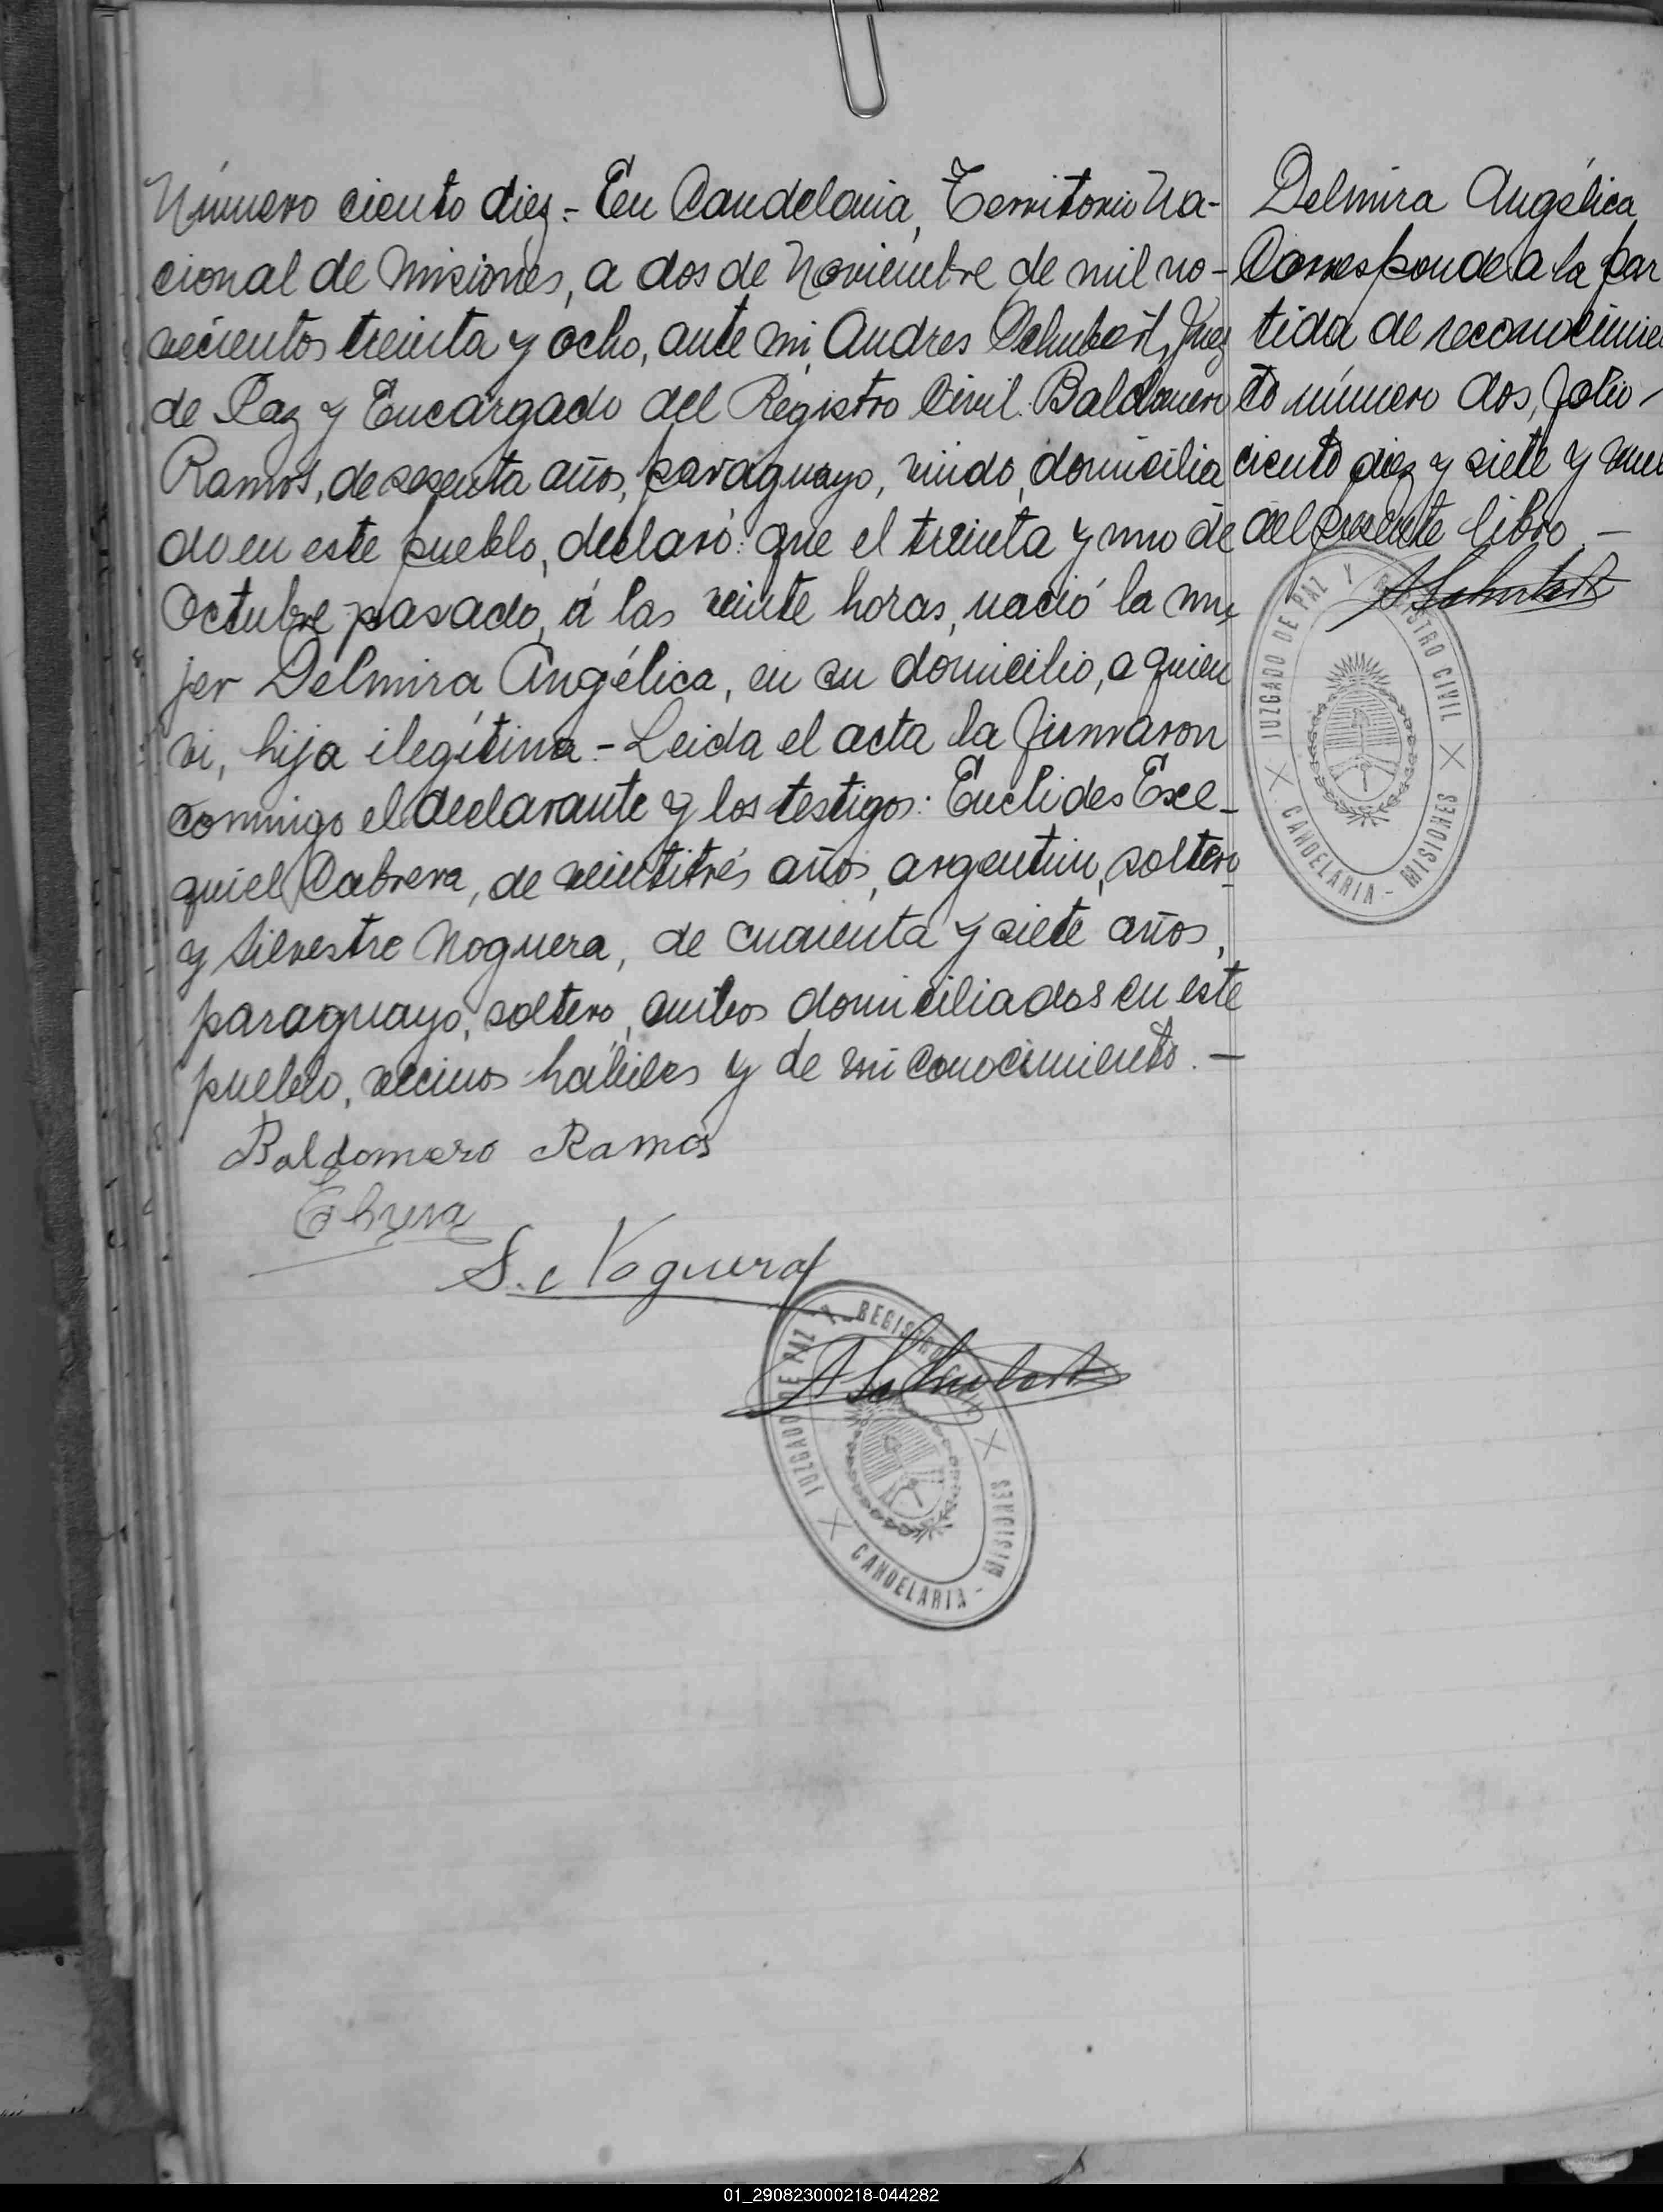 Número ciento diez.- En Candelaria, Territorio Na-
cional de Misiones, a dos de Noviembre de mil no-
vecientos treinta y ocho, ante mi, Andres Schubert, Juez
de Paz y Encargado del Registro Civil. Baldomero
Ramos, de sesenta años, paraguayo, viudo, domicilia
do en este pueblo, declaró: que el treinta y uno de
Octubre pasado, á las veinte horas, nació la mu-
jer Delmira Angélica, en su domicilio, a quien
vi, hija ilegítima.- Leida el acta la firmaron
conmigo el declarante y los testigos: Euclides Exe-
quiel Cabrera, de veintitrés años, argentino, soltero
y Silvestre Noguera, de cuarenta y siete años,
paraguayo, soltero, ambos domiciliados en este
pueblo, vecinos hábiles y de mi conocimiento.-
Baldomero Ramos
S. Noguera
A Schubert
JUZGADO DE PAZ Y REGISTRO CIVIL
CANDELARIA - MISIONES
Delmira Angélica
Corresponde a la par
tida de reconocimien
to número dos, folio
ciento diez y siete y vuel
del presente libro.-
A Schubert
JUZGADO DE PAZ Y REGISTRO CIVIL
CANDELARIA - MISIONES
01_290823000218-044282